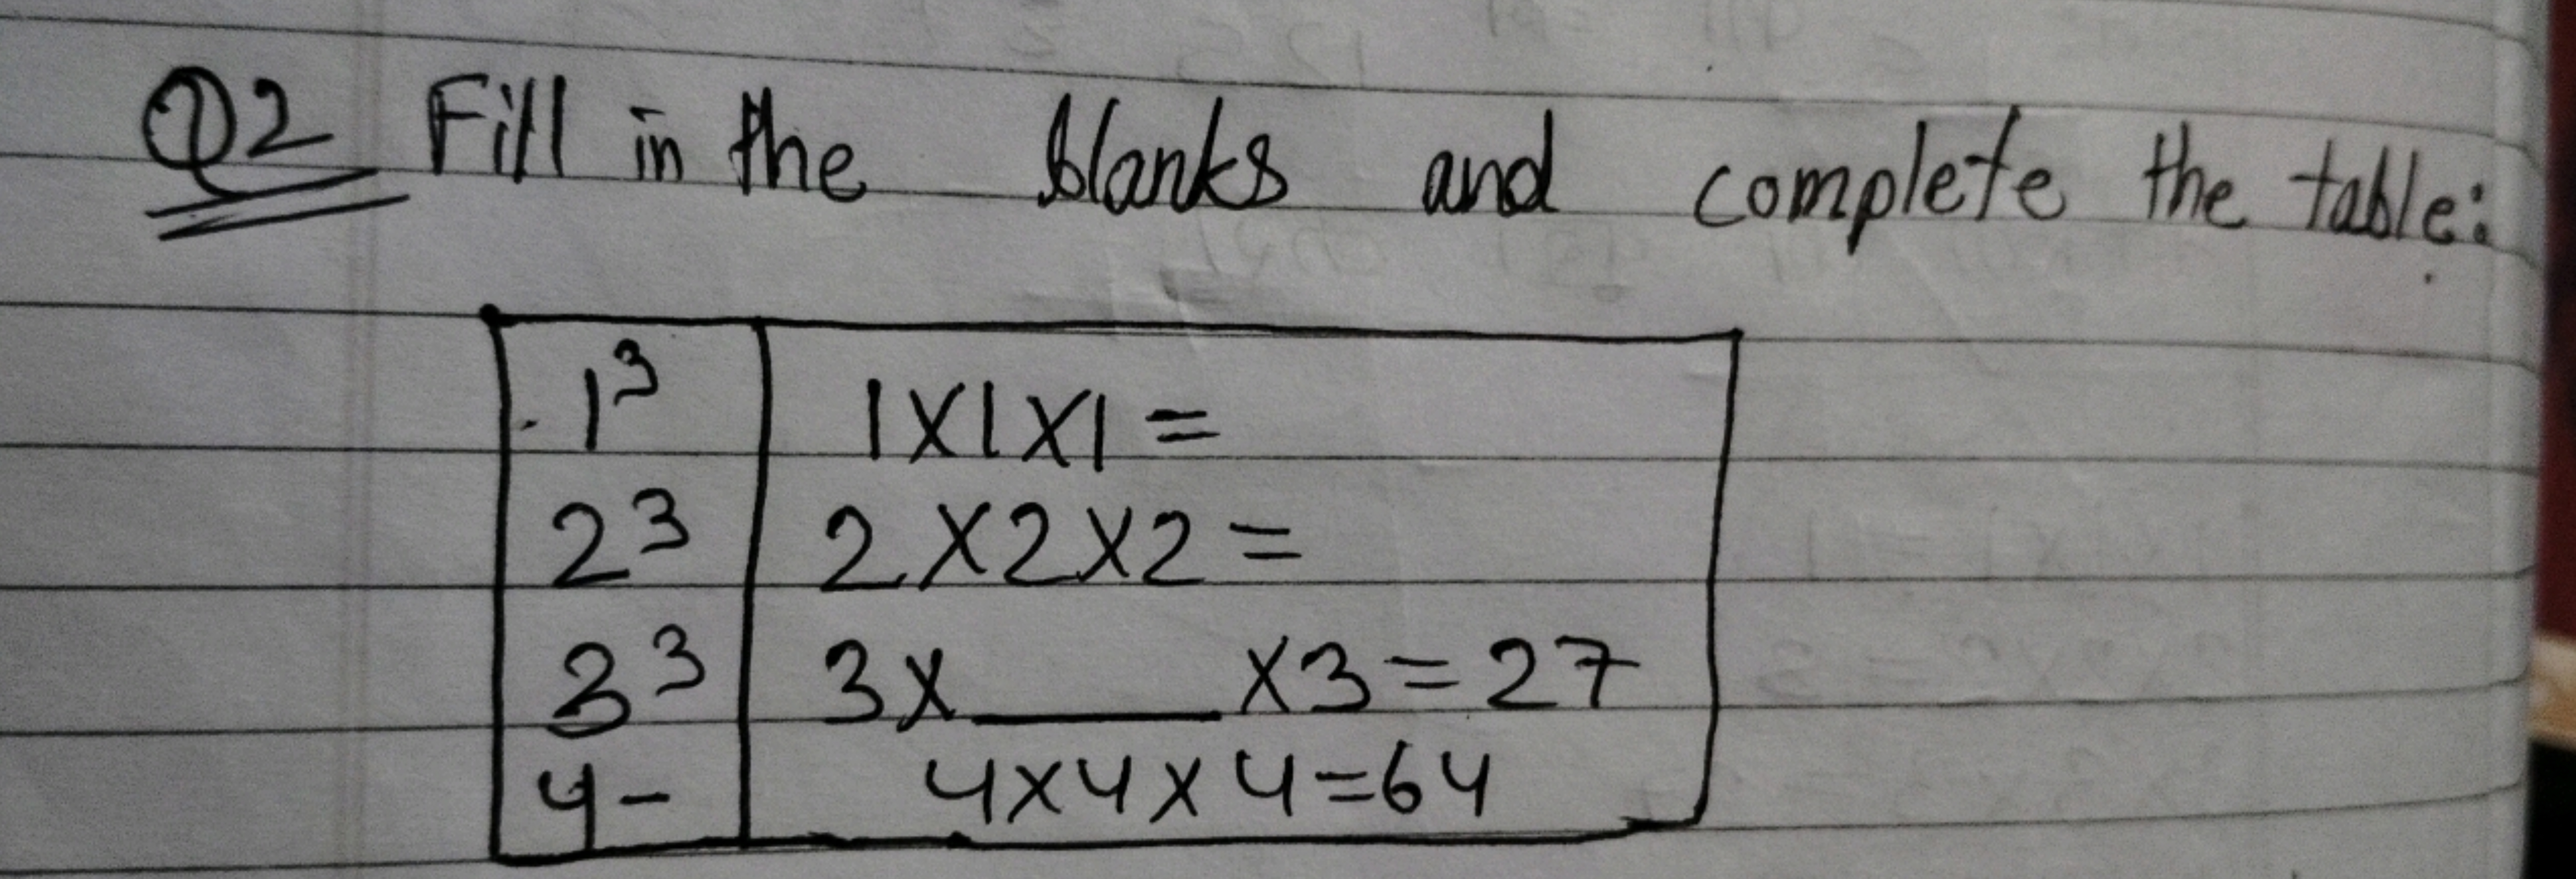 Q2 Fill in the blanks and complete the table:
1³ 1X1X1=
2³ 2X2X2=
3³ 3X____X3=27
4- 4X4X4=64